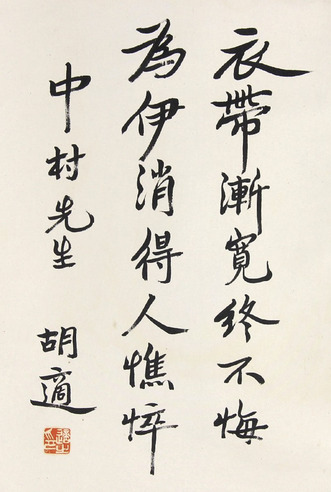 衣帶漸寬終不悔
為伊消得人憔悴
中村先生
胡適
適之